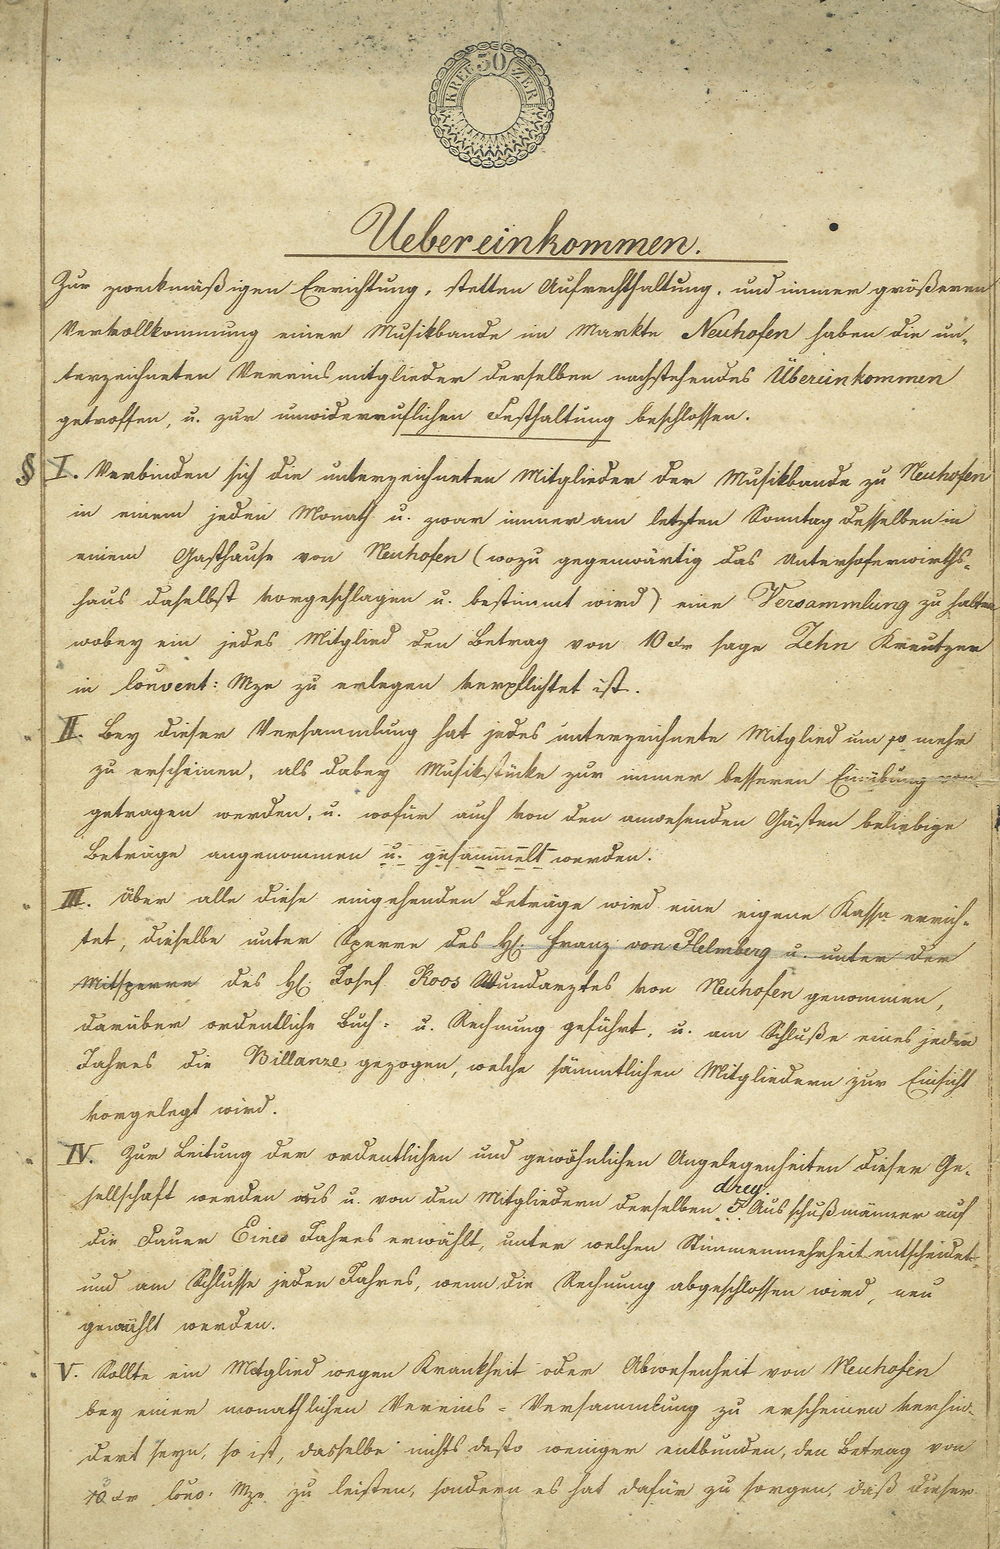 30
KREUZER
Uebereinkommen.
Zur zweckmäßigen Errichtung, stetten Aufrechthaltung, und immer größeren
Vervollkommnung einer Musikbande im Markte Neuhofen haben die un-
terzeichneten Vereinsmitglieder derselben nachstehendes Übereinkommen
getroffen, u. zur unwiderruflichen Festhaltung beschlossen.
§ I. Verbinden sich die unterzeichneten Mitglieder der Musikbande zu Neuhofen
in einem jeden Monath u. zwar immer am letzten Sonntag desselben in
einem Gasthause von Neuhofen (wozu gegenwärtig das Unterhoferwirths-
haus daselbst vorgeschlagen u. bestimmt wird) eine Versammlung zu halten
wobey ein jedes Mitglied den Betrag von 10 xr sage Zehn Kreutzer
in Convent: Mze zu erlegen verpflichtet ist.
II. Bey dieser Versammlung hat jedes unterzeichnete Mitglied um so mehr
zu erscheinen, als dabey Musikstücke zur immer besseren Einübung vor-
getragen werden, u. wofür auch von den anwesenden Gästen beliebige
Beträge angenommen u. gesammelt werden.
III. Über alle diese eingehenden Beträge wird eine eigene Kassa errich-
tet, dieselbe unter Sperre des H: Franz von Helmberg u. unter der
Mitsperre des H: Josef Koos Wundarztes von Neuhofen genommen,
darüber ordentliche Buch- u. Rechnung geführt, u. am Schluße eines jeden
Jahres die Billanze gezogen, welche sämmtlichen Mitgliedern zur Einsicht
vorgelegt wird.
IV. Zur Leitung der ordentlichen und gewöhnlichen Angelegenheiten dieser Ge-
drey.
sellschaft werden aus u. von den Mitgliedern derselben 5 Ausschußmänner auf
die Dauer Eines Jahres erwählt, unter welchen Stimmenmehrheit entscheidet
und am Schlusse jeden Jahres, wenn die Rechnung abgeschlossen wird, neu
gewählt werden.
V. Sollte ein Mitglied wegen Krankheit oder Abwesenheit von Neuhofen
bey einer monathlichen Vereins-Versammlung zu erscheinen verhin-
dert seyn, so ist, dasselbe nichts desto weniger entbunden, den Betrag von
10 xr Conv. Mze zu leisten, sondern es hat dafür zu sorgen, daß dieser